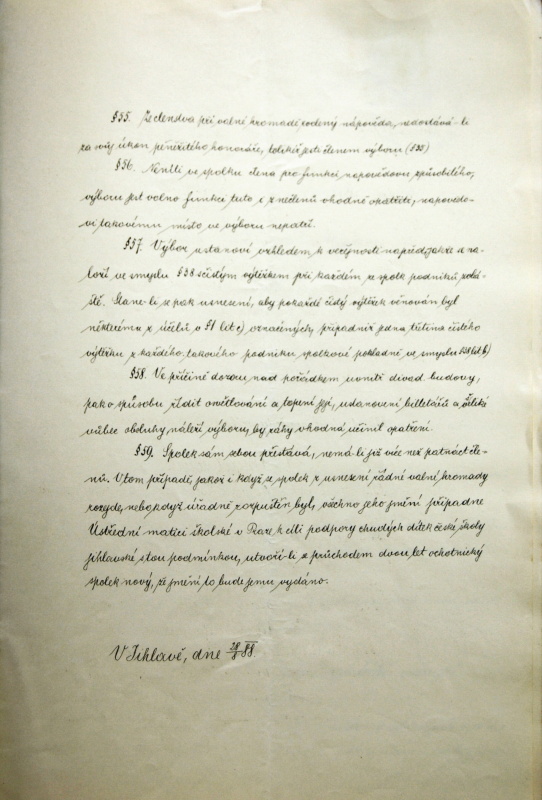 §55. Ze členstva při valné hromadě volený nápověda, nedostává-li
za svůj úkon peněžitého honoráře, tolikéž jest členem výboru (§33)
§56. Není-li ve spolku člena pro funkci napovědovu způsobilého,
výboru jest volno funkci tuto i z nečlenů vhodně opatřiti, napovědo-
vi takovému místo ve výboru nepatří.
§57. Výbor ustanoví vzhledem k veřejnosti napřed, jakže se na-
loží ve smyslu §38 s čistým výtěžkem při každém ze spolk. podniků zvlá-
ště. Stane-li se pak usnesení, aby pokaždé čistý výtěžek věnován byl
některému z účelů v §1 lit c) označených, připadniž jedna třetina čistého
výtěžku z každého takového podniku spolkové pokladně ve smyslu §38 lit. b)
§58. Ve příčině dozoru nad pořádkem uvnitř divad. budovy,
jako způsobu řídit osvětlování a topení její, ustanovení billetářů a
vůbec obsluhy náleží výboru, by záhy vhodná učinil opatření.
§59. Spolek sám sebou přestává, nemá-li již více než patnáct čle-
nů. V tom případě, jakož i když se spolek z usnesení řádné valné hromady
rozejde, nebo když úřadně rozpuštěn byl, všechno jeho jmění připadne
Ústřední matici školské v Praze k cíli podpory chudých dítek české školy
jihlavské s tou podmínkou, utvoří-li se průchodem dvou let ochotnický
spolek nový, že jmění to bude jemu vydáno.
V Jihlavě, dne 28/8 88.